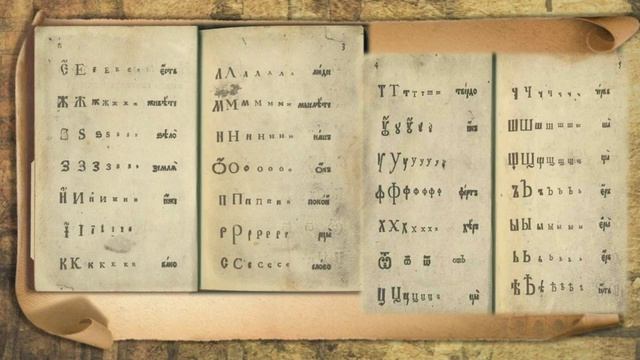 Є҃ Е е е е е е є҆́сть
Ж Ж ж ж ж ж живѣ́те
Ѕ Ѕ ѕ ѕ ѕ ѕ ѕѣлѡ̀
З З З з з з з землѧ̀
И҆ И и и и и и и҆́же
І҆ І і і і і і
К К к к к к к ка́кѡ
3
Л Л л л л л л лю́ди
М М м м м м м мыслѣ́те
Н Н н н н н н на́шъ
Ѻ О о о о о о ѻ҆́нъ
П П п п п п п поко́й
Р Р р р р р р рцы̀
С С с с с с с сло́во
4
Т Т т т т т т тве́рдо
ꙋ ꙋ ꙋ ꙋ ꙋ и҆́къ
У У у у у у у
Ф Ф ф ф ф ф ф фе́ртъ
Х Х х х х х х хѣ́ръ
Ѿ ѿ ѿ ѿ
Ц Ц ц ц ц ц ц цы̀
ч Ч ч ч ч ч ч че́рвь
Ш Ш ш ш ш ш ш ша̀
Щ Щ щ щ щ щ щ ща̀
Ъ Ъ ъ ъ ъ ъ ъ є҆́ръ
Ы Ы ы ы ы ы ы є҆ры̀
Ь Ь ь ь ь ь ь є҆́рь
Ѣ Ѣ ѣ ѣ ѣ ѣ ѣ ꙗ҆́ть